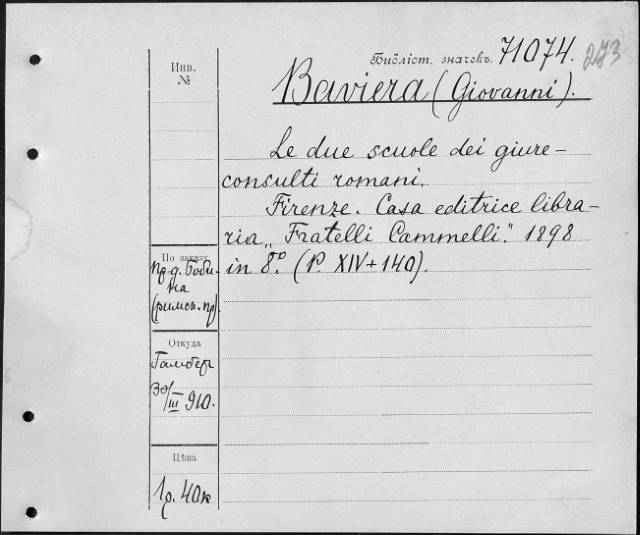 Библіот. значекъ. 71074. 273
Инв.
№
Baviera (Giovanni).
Le due scuole dei giure-
consulti romani.
Firenze. Casa editrice libra-
ria „Fratelli Cammelli." 1898
in 8º. (P. XIV+140).
По заказу
пр-д. Боби-
на
(римск. пр).
Откуда
Гамбер
30/III 910.
Цѣна
1 р. 40 к